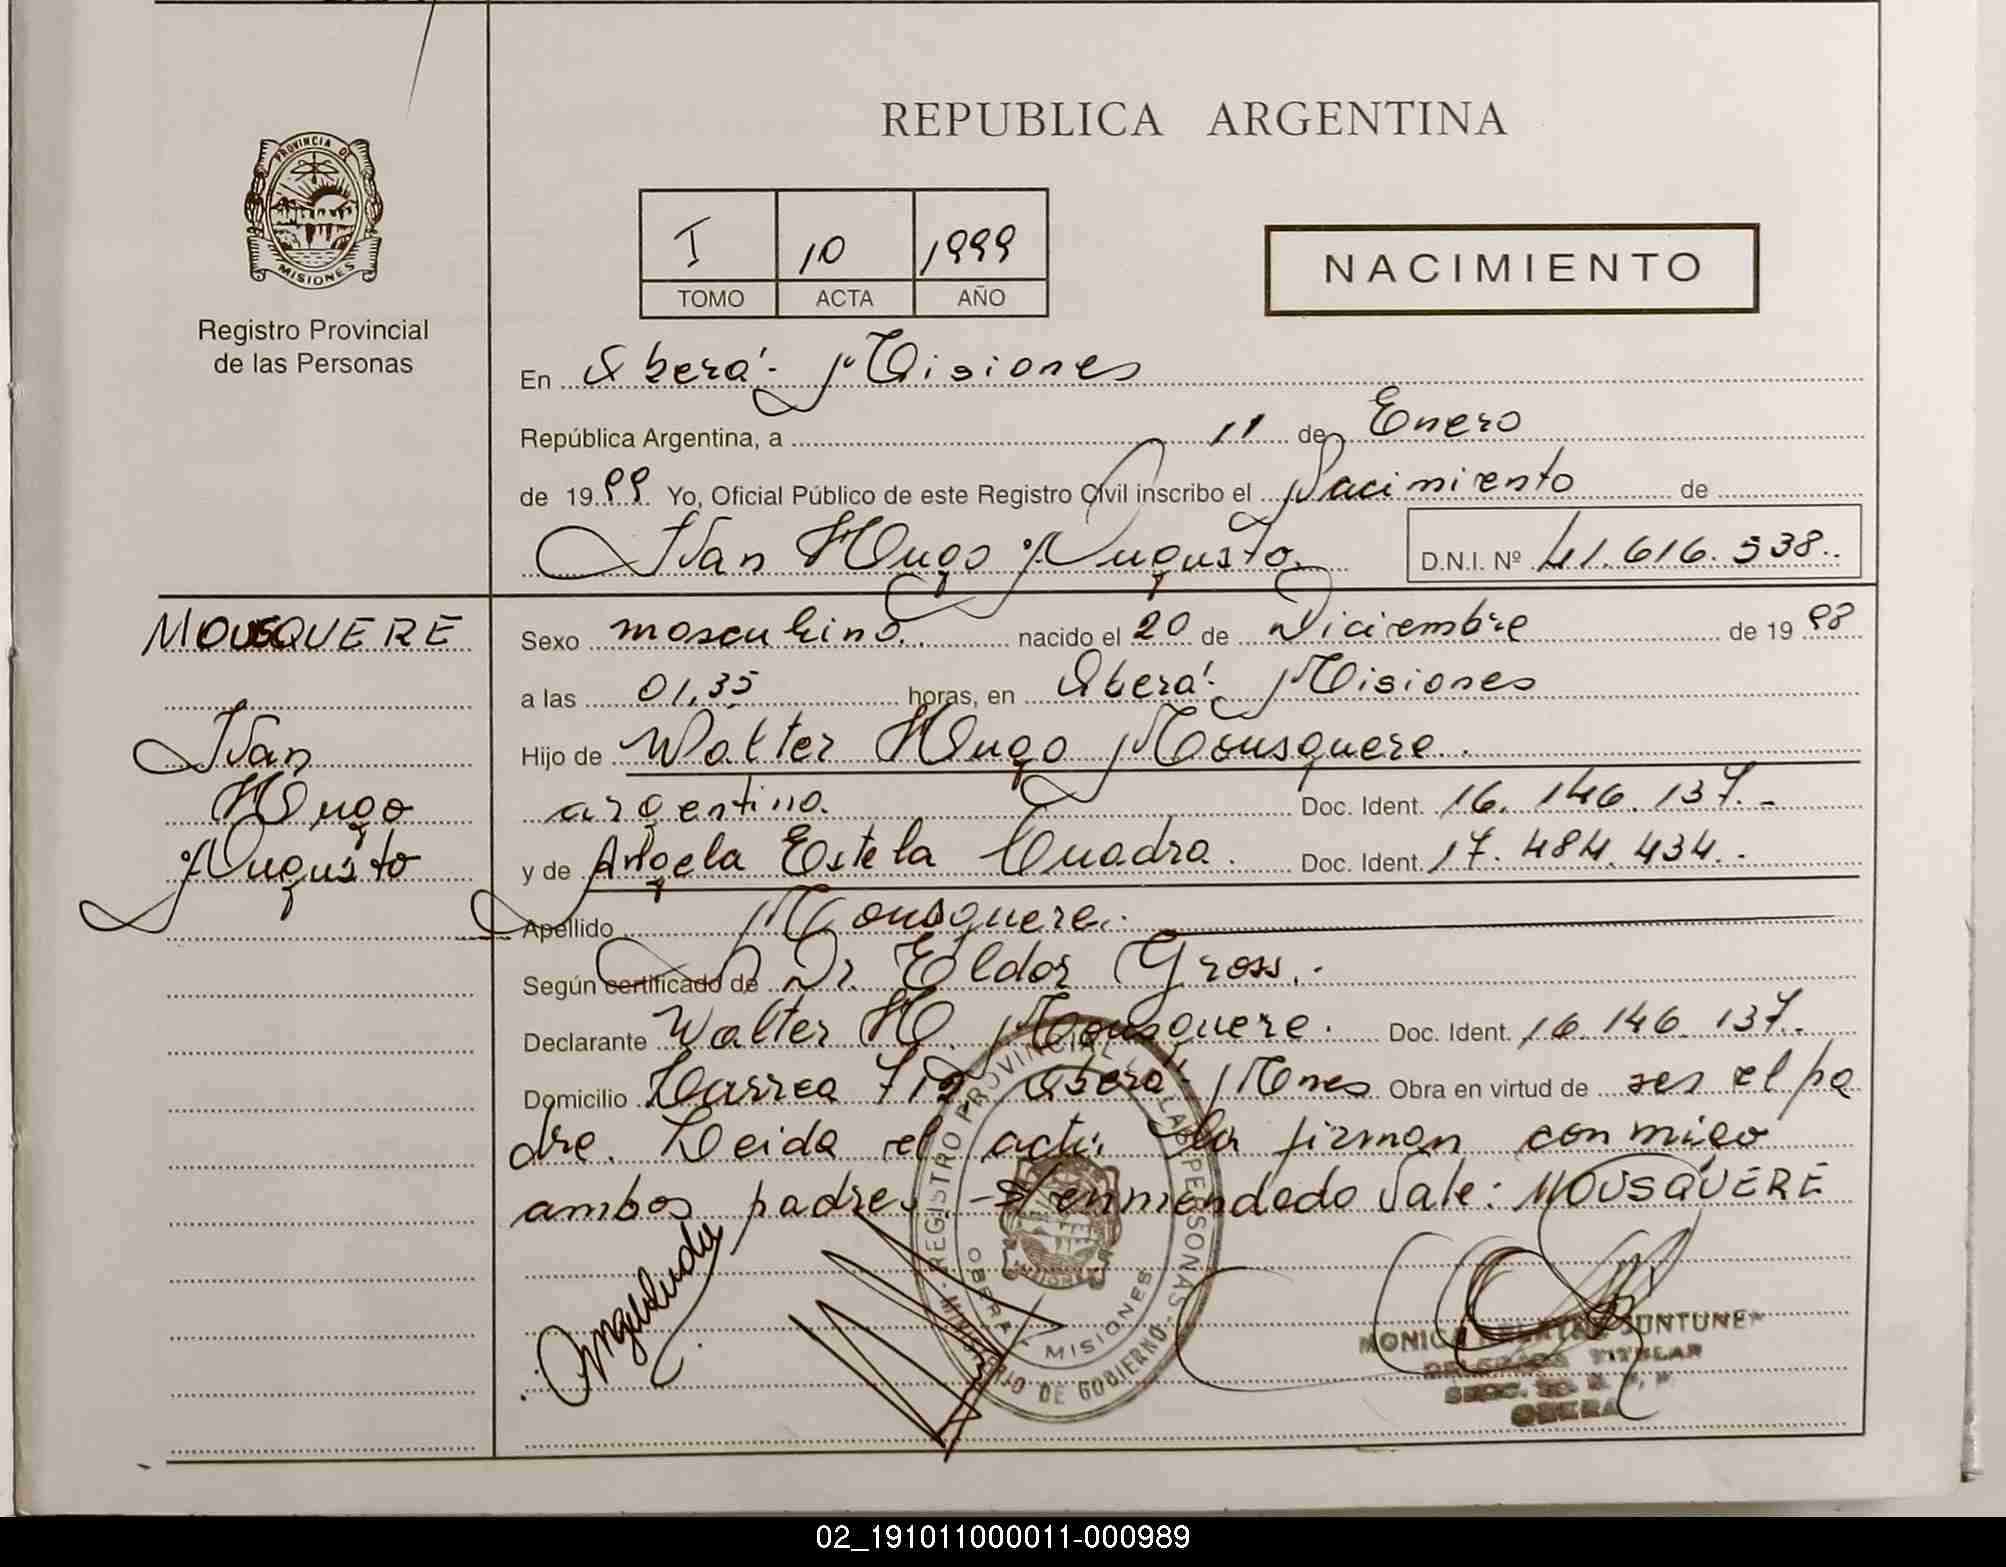 REPUBLICA ARGENTINA
PROVINCIA DE
MISIONES
Registro Provincial
de las Personas
I 10 1999
TOMO ACTA AÑO
NACIMIENTO
En Oberá - Misiones
República Argentina, a 11 de Enero
de 1999 Yo, Oficial Público de este Registro Civil inscribo el Nacimiento de
Iván Hugo Augusto D.N.I. Nº 41.616.538
MOUSQUERE
Iván
Hugo
Augusto
Sexo masculino nacido el 20 de Diciembre de 1998
a las 01,35 horas, en Oberá - Misiones
Hijo de Walter Hugo Mousquere
argentino. Doc. Ident. 16.146.137.-
y de Angela Estela Cuadra. Doc. Ident. 17.484.434.-
Apellido Mousquere.-
Según certificado de Dr. Eldor Gross.-
Declarante Walter H. Mousquere. Doc. Ident. 16.146.137.-
Domicilio Larrea 712 Oberá Mnes Obra en virtud de ser el pa
dre. Leida el acta la firman conmigo
ambos padres - Enmendado Vale: MOUSQUERE
REGISTRO PROVINCIAL DE LAS PERSONAS
MINISTERIO DE GOBIERNO
OBERA - MISIONES
MISIONES
MONICA
TITULAR
OBERA
02_191011000011-000989